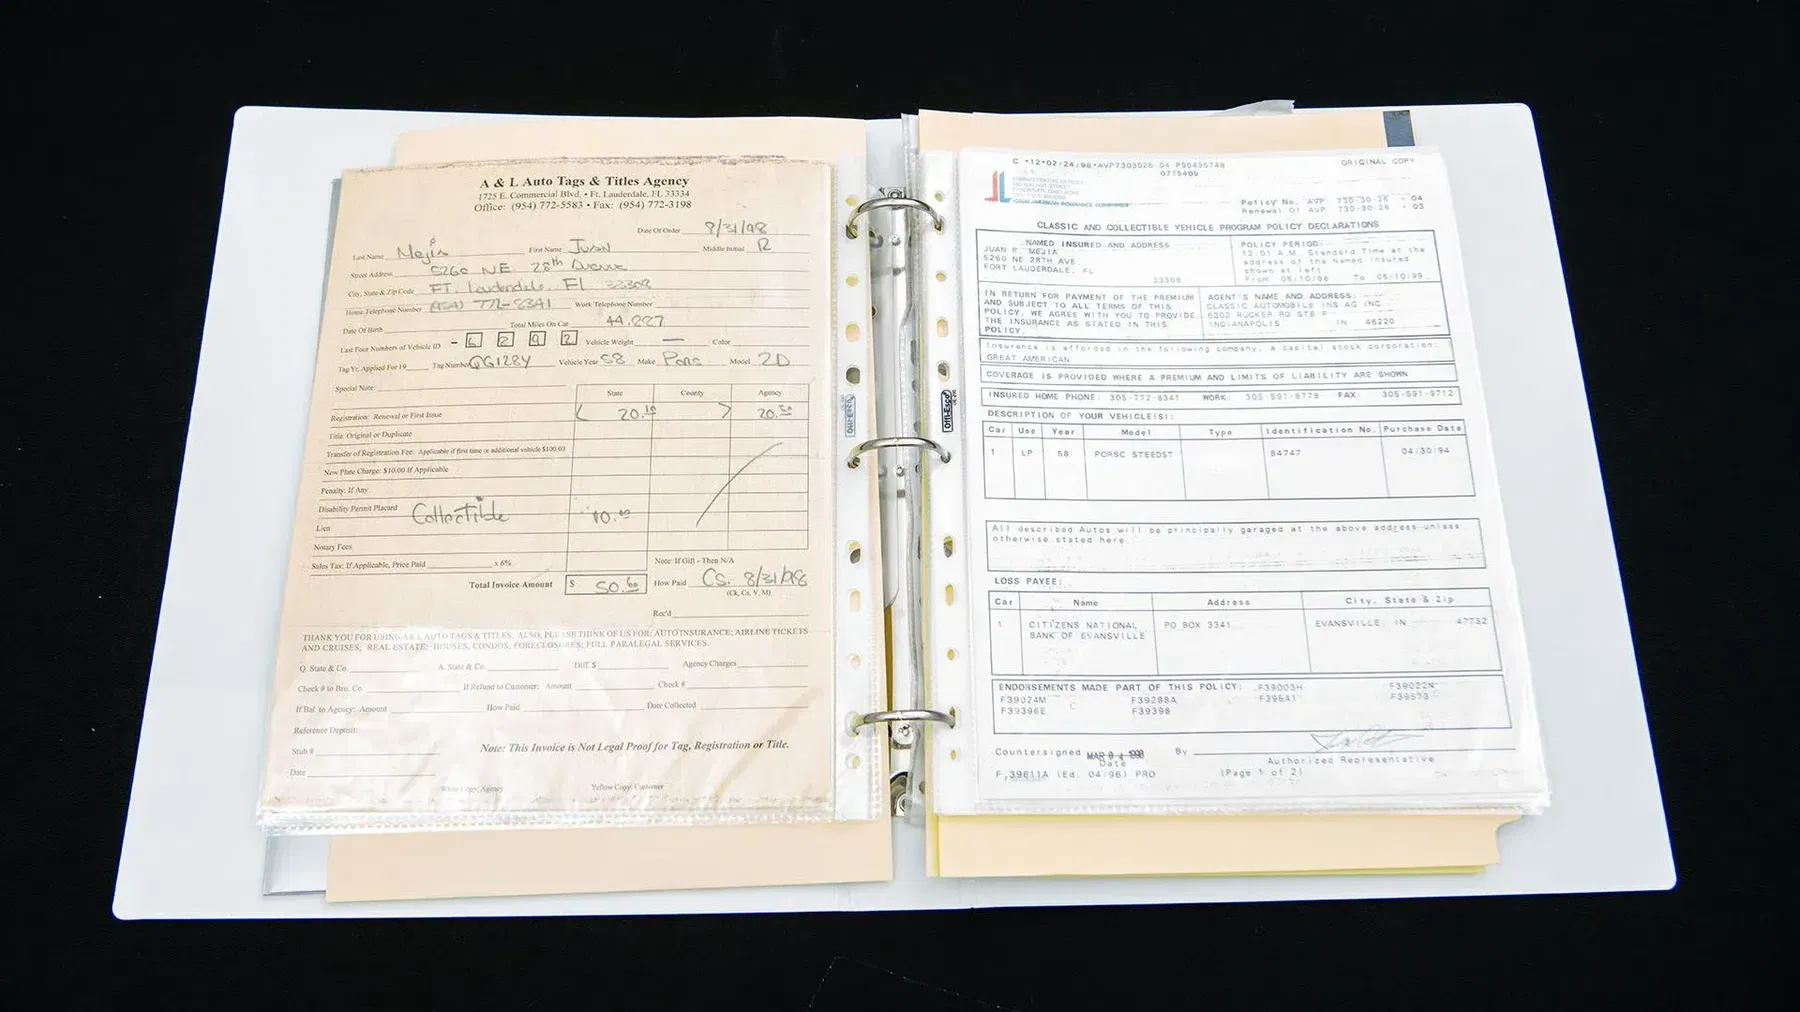 A & L Auto Tags & Titles Agency
1725 E. Commercial Blvd. • Ft. Lauderdale, FL 33334
Office: (954) 772-5583 • Fax: (954) 772-3198
Date Of Order 8/31/98
Last Name Mejia First Name Juan Middle Initial R
Street Address 5260 NE 28th Avenue
City, State & Zip Code FT. Lauderdale, Fl 33308
Home Telephone Number (954) 772-8341 Work Telephone Number
Date Of Birth Total Miles On Car 44,887
Last Four Numbers of Vehicle ID - 6 2 9 2 Vehicle Weight — Color
Tag Yr. Applied For 19 Tag Number QG128Y Vehicle Year 58 Make Pors Model 2D
Special Note:
State County Agency
Registration: Renewal or First Issue 20.10 20.50
Title: Original or Duplicate
Transfer of Registration Fee: Applicable if first time or additional vehicle $100.00
New Plate Charge: $10.00 If Applicable
Penalty: If Any
Disability Permit Placard Collectible 10.00
Lien
Notary Fees
Sales Tax: If Applicable, Price Paid x 6% Note: If Gift - Then N/A
Total Invoice Amount $ 50.60 How Paid Cs. 8/31/98
(Ck, Cs, V, M)
Rec'd
THANK YOU FOR USING A & L AUTO TAGS & TITLES, ALSO, PLEASE THINK OF US FOR: AUTO INSURANCE; AIRLINE TICKETS
AND CRUISES; REAL ESTATE: HOUSES, CONDOS, FORECLOSURES; FULL PARALEGAL SERVICES.
Q. State & Co. A. State & Co. Diff. $ Agency Charges
Check # to Bro. Co. If Refund to Customer: Amount Check #
If Bal. to Agency: Amount How Paid Date Collected
Reference Deposit:
Stub #
Note: This Invoice is Not Legal Proof for Tag, Registration or Title.
Date
White Copy: Agency Yellow Copy: Customer
Offi-Esco
C *12*02/24/98*AVP7303026 04 P90495748 ORIGINAL COPY
0775409
GREAT AMERICAN INSURANCE COMPANIES
Policy No. AVP 730-30-26 - 04
Renewal Of AVP 730-30-26 - 03
CLASSIC AND COLLECTIBLE VEHICLE PROGRAM POLICY DECLARATIONS
NAMED INSURED AND ADDRESS
JUAN R. MEJIA
5260 NE 28TH AVE.
FORT LAUDERDALE, FL
33308
POLICY PERIOD:
12:01 A.M. Standard Time at the
address of the Named Insured
shown at left
From 05/10/98 To 05/10/99
IN RETURN FOR PAYMENT OF THE PREMIUM
AND SUBJECT TO ALL TERMS OF THIS
POLICY, WE AGREE WITH YOU TO PROVIDE
THE INSURANCE AS STATED IN THIS
POLICY.
AGENT'S NAME AND ADDRESS:
CLASSIC AUTOMOBILE INS AG INC
6202 RUCKER RD STE F
INDIANAPOLIS IN 46220
Insurance is afforded in the following company, a capital stock corporation:
GREAT AMERICAN
COVERAGE IS PROVIDED WHERE A PREMIUM AND LIMITS OF LIABILITY ARE SHOWN
INSURED HOME PHONE: 305-772-8341 WORK: 305-591-8778 FAX: 305-591-9712
DESCRIPTION OF YOUR VEHICLE(S):
Car Use Year Model Type Identification No. Purchase Date
1 LP 58 PORSC STEEDST 84747 04/30/94
All described Autos will be principally garaged at the above address unless
otherwise stated here.
LOSS PAYEE:
Car Name Address City, State & Zip
1 CITIZENS NATIONAL PO BOX 3341 EVANSVILLE, IN 47732
BANK OF EVANSVILLE
ENDORSEMENTS MADE PART OF THIS POLICY: F39003H F39022N
F39024M F39288A F39541 F39573
F39396E F39398
Countersigned MAR 04 1998 By
Date Authorized Representative
F.39611A (Ed. 04/96) PRO (Page 1 of 2)